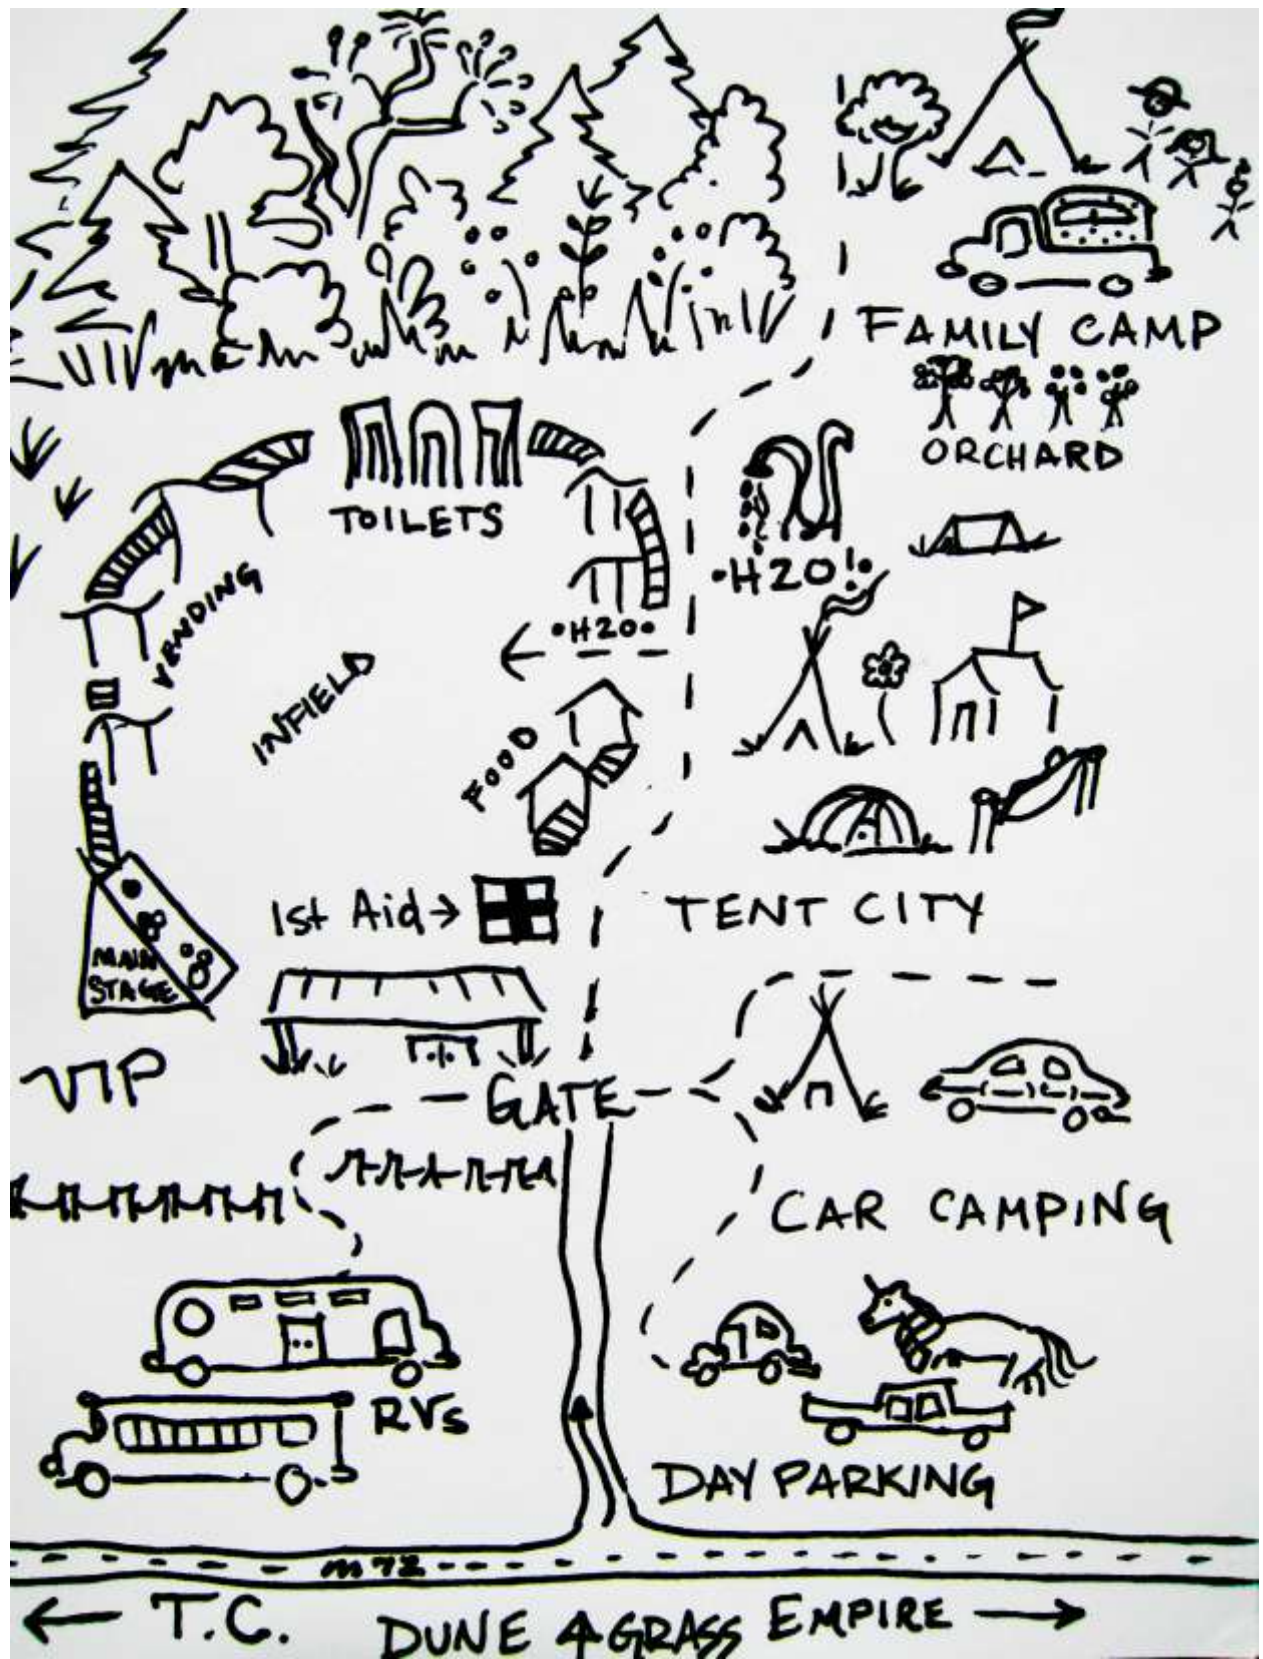 FAMILY CAMP
ORCHARD
TOILETS
·H2O!·
VENDING
·H2O·
INFIELD
FOOD
1st Aid →
TENT CITY
MAIN
STAGE
VIP
GATE
CAR CAMPING
RVs
DAY PARKING
M72
← T.C.
DUNE GRASS
EMPIRE →